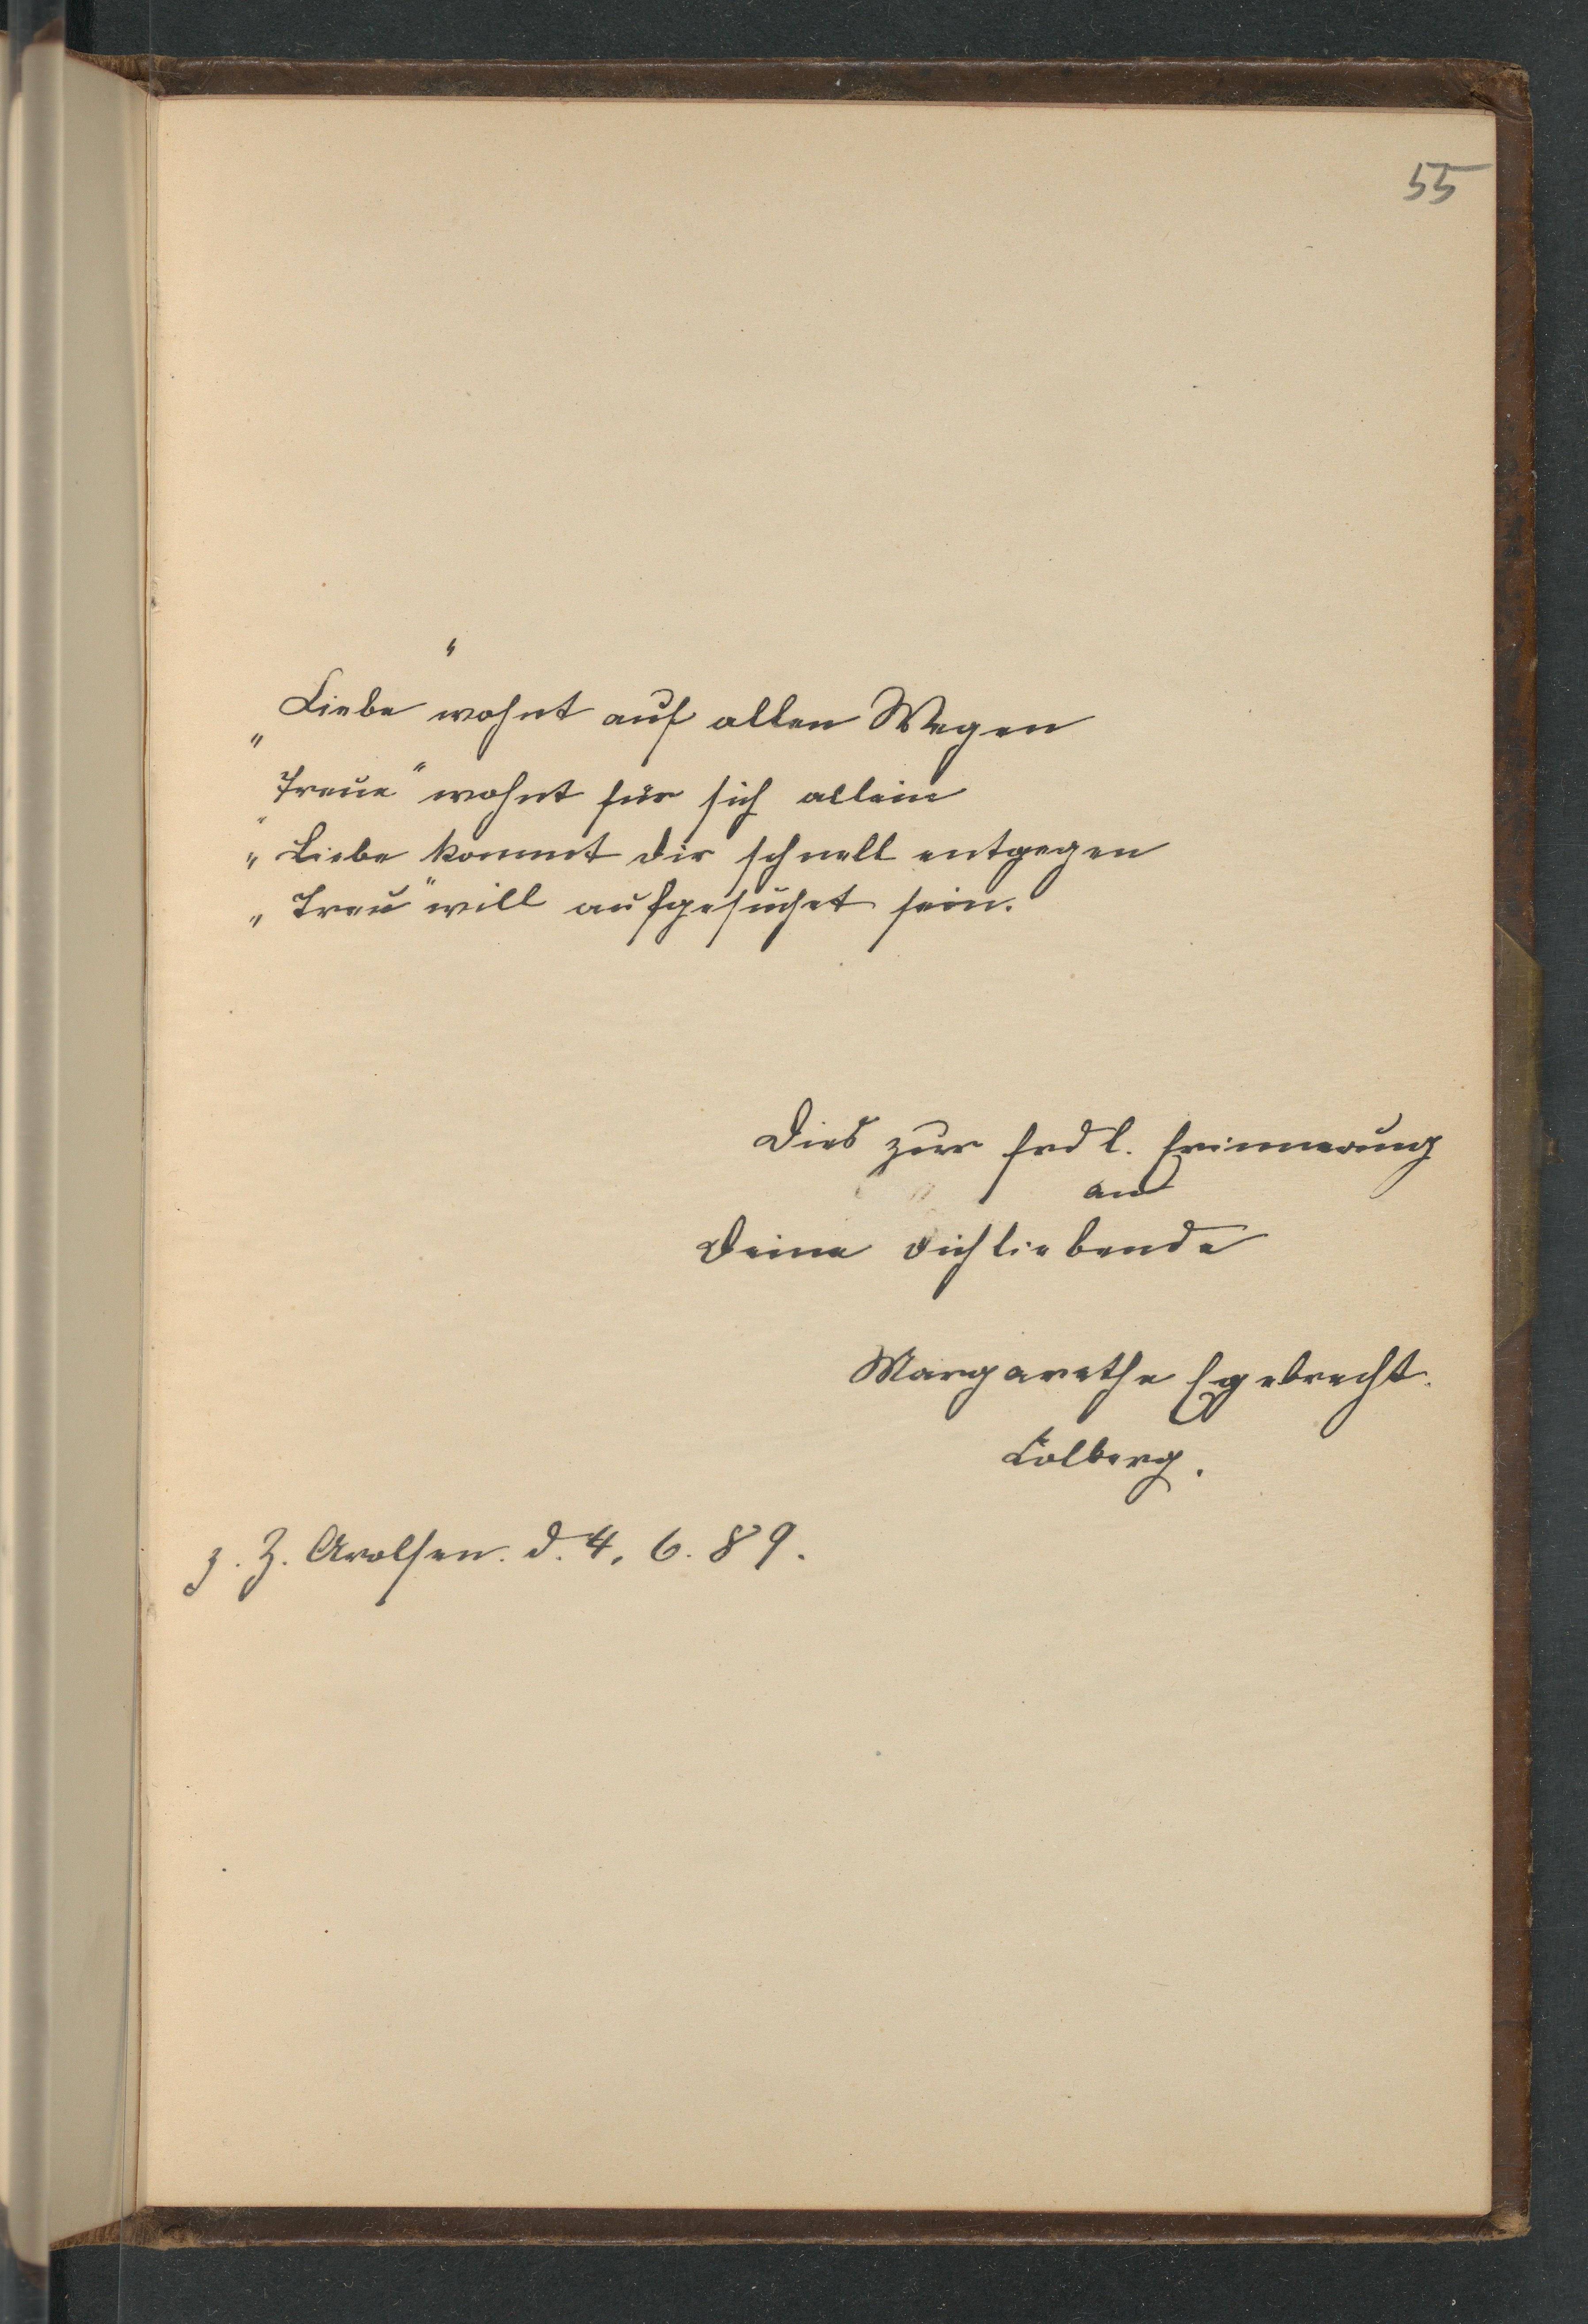 55
„Liebe“ wohnt auf allen Wegen
„Treue“ wohnt für sich allein
„Liebe kommt dir schnell entgegen
„Treu“ will aufgesuchet sein.
Dies zur frdl. Erinnerung
an
Deine dichliebende
Margarethe Egebrecht.
Colberg.
z. Z. Arolsen. d. 4. 6. 89.